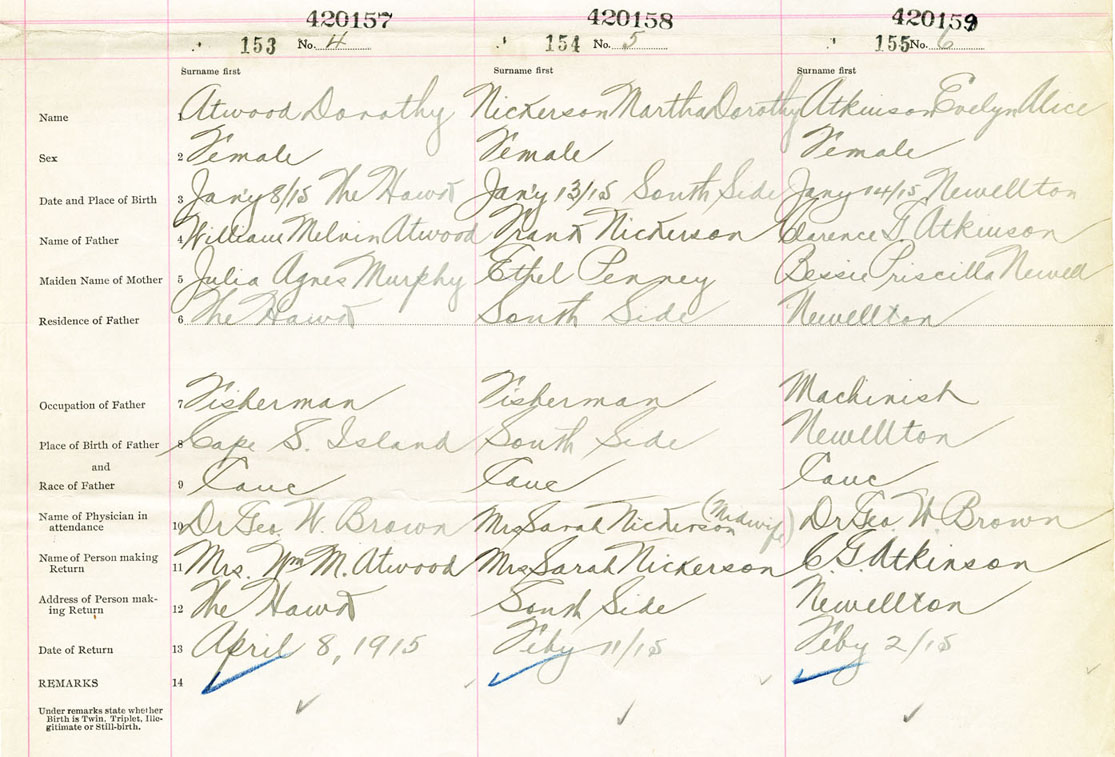 420157 420158 420159
153 No. 4 154 No. 5 155 No. 6
Surname first Surname first Surname first
Name 1 Atwood Dorothy Nickerson Martha Dorothy Atkinson Evelyn Alice
Sex 2 Female Female Female
Date and Place of Birth 3 Jan'y 8/15 The Hawk Jan'y 13/15 South Side Jany 14/15 Newellton
Name of Father 4 William Melvin Atwood Frank Nickerson Clarence G Atkinson
Maiden Name of Mother 5 Julia Agnes Murphy Ethel Penney Bessie Priscilla Newell
Residence of Father 6 The Hawk South Side Newellton
Occupation of Father 7 Fisherman Fisherman Machinist
Place of Birth of Father 8 Cape S. Island South Side Newellton
and
Race of Father 9 Cauc Cauc Cauc
Name of Physician in
attendance 10 Dr Geo. W. Brown Mrs Sarah Nickerson (Midwife) Dr Geo W Brown
Name of Person making
Return 11 Mrs. Wm M. Atwood Mrs Sarah Nickerson C. G. Atkinson
Address of Person mak-
ing Return 12 The Hawk South Side Newellton
Date of Return 13 April 8, 1915 Feby 11/15 Feby 2/15
REMARKS 14
Under remarks state whether
Birth is Twin, Triplet, Ille-
gitimate or Still-birth.